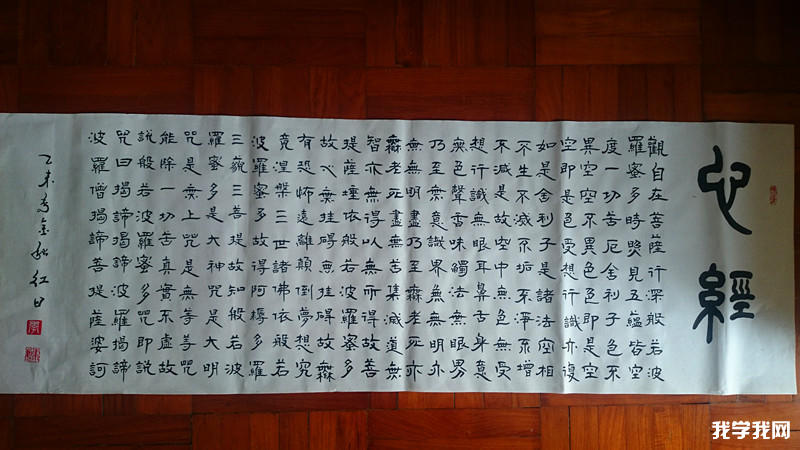 心經
觀自在菩薩行深般若波
羅蜜多時照見五蘊皆空
度一切苦厄舍利子色不
異空空不異色色即是空
空即是色受想行識亦復
如是舍利子是諸法空相
不生不滅不垢不淨不增
不減是故空中無色無受
想行識無眼耳鼻舌身意
無色聲香味觸法無眼界
乃至無意識界無無明亦
無無明盡乃至無老死亦
無老死盡無苦集滅道無
智亦無得以無所得故菩
提薩埵依般若波羅蜜多
故心無挂碍無挂碍故無
有恐怖遠離顛倒夢想究
竟涅槃三世諸佛依般若
波羅蜜多故得阿耨多羅
三藐三菩提故知般若波
羅蜜多是大神咒是大明
咒是無上咒是無等等咒
能除一切苦真實不虛故
說般若波羅蜜多咒即說
咒曰揭諦揭諦波羅揭諦
波羅僧揭諦菩提薩婆訶
乙未金秋红日
我学我网